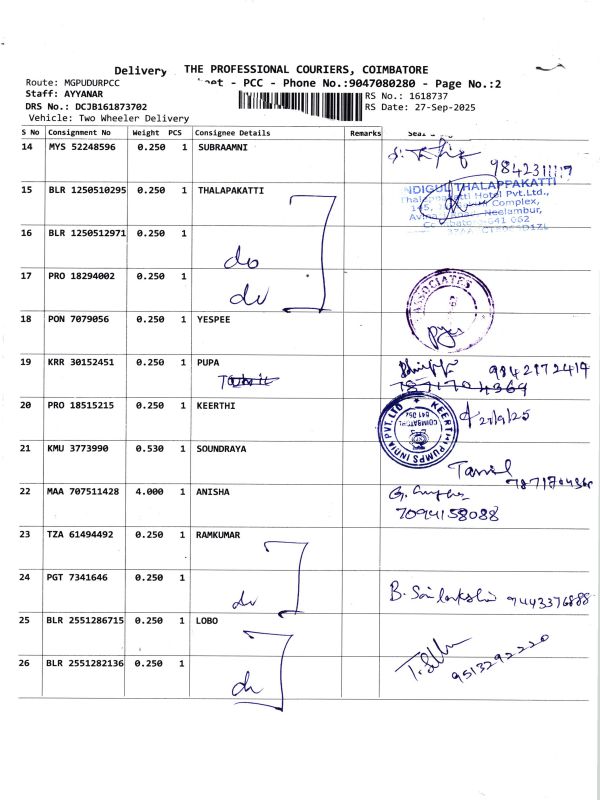 Delivery THE PROFESSIONAL COURIERS, COIMBATORE
Route: MGPUDURPCC
- PCC - Phone No.:9047080280 - Page No.:2
Staff: AYYANAR
RS No.: 1618737
DRS No.: DCJB161873702
RS Date: 27-Sep-2025
Vehicle: Two Wheeler Delivery
S No Consignment No Weight PCS Consignee Details Remarks
14 MYS 52248596 0.250 1 SUBRAAMNI
15 BLR 1250510295 0.250 1 THALAPAKATTI
THALAPPAKATTI
Hotel Pvt.Ltd.,
Complex,
Neelambur,
641 062
16 BLR 1250512971 0.250 1
do
17 PRO 18294002 0.250 1
do
ASSOCIATES
18 PON 7079056 0.250 1 YESPEE
19 KRR 30152451 0.250 1 PUPA
9842172414
20 PRO 18515215 0.250 1 KEERTHI
KEERTHI PUMPS INDIA PVT. LTD
COIMBATORE
27/9/25
21 KMU 3773990 0.530 1 SOUNDRAYA
Tamil
22 MAA 707511428 4.000 1 ANISHA
7094158088
23 TZA 61494492 0.250 1 RAMKUMAR
24 PGT 7341646 0.250 1
do
9443376888
25 BLR 2551286715 0.250 1 LOBO
26 BLR 2551282136 0.250 1
do
9513292220